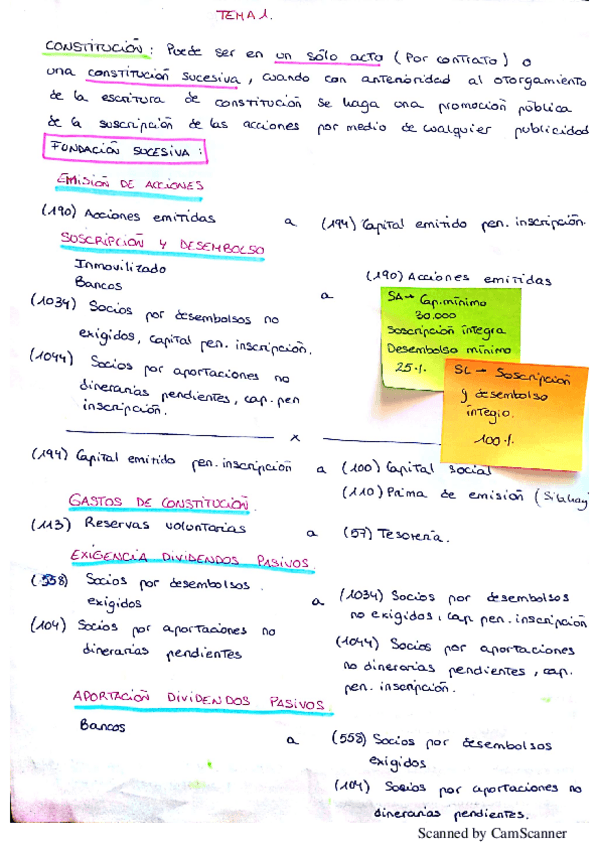 TEMA 1.
CONSTITUCIÓN: Puede ser en un sólo acto (Por contrato) o
una constitución sucesiva, cuando con anterioridad al otorgamiento
de la escritura de constitución se haga una promoción pública
de la suscripción de las acciones por medio de cualquier publicidad
FUNDACIÓN SUCESIVA:
EMISIÓN DE ACCIONES
(190) Acciones emitidas a (194) Capital emitido pen. inscripción.
SUSCRIPCIÓN Y DESEMBOLSO
Inmovilizado (190) Acciones emitidas
Bancos a
(1034) Socios por desembolsos no
exigidos, capital pen. inscripción.
(1044) Socios por aportaciones no
dinerarias pendientes, cap. pen
inscripción.
SA → Cap. mínimo
30.000
Suscripción íntegra
Desembolso mínimo
25%
SL → Suscripción
y desembolso
íntegro.
100%
x
(194) Capital emitido pen. inscripción a (100) Capital social
(110) Prima de emisión (Si la hay)
GASTOS DE CONSTITUCIÓN.
(113) Reservas voluntarias a (57) Tesorería.
EXIGENCIA DIVIDENDOS PASIVOS.
(558) Socios por desembolsos.
exigidos
(104) Socios por aportaciones no
dinerarias pendientes
a (1034) Socios por desembolsos
no exigidos, cap. pen. inscripción
(1044) Socios por aportaciones
no dinerarias pendientes, cap.
pen. inscripción.
APORTACIÓN DIVIDENDOS PASIVOS.
Bancos a (558) Socios por desembolsos
exigidos
(104) Socios por aportaciones no
dinerarias pendientes.
Scanned by CamScanner